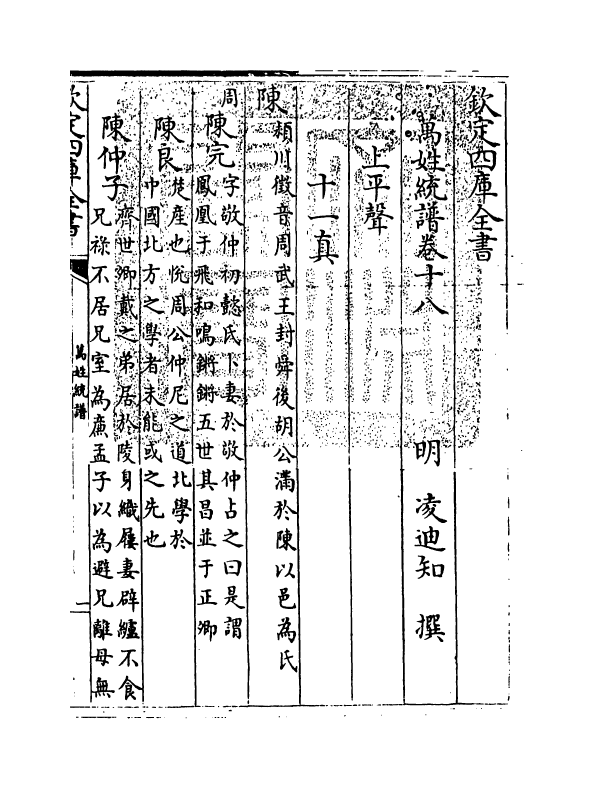 欽定四庫全書
萬姓統譜卷十八
明 凌迪知 撰
上平聲
十一真
陳
潁川徵音周武王封舜後胡公滿於陳以邑為氏
周
陳完
字敬仲初懿氏卜妻於敬仲占之曰是謂
鳳凰于飛和鳴鏘鏘五世其昌並于正卿
陳良
楚產也悅周公仲尼之道北學於
中國北方之學者未能或之先也
陳仲子
齊世卿戴之弟居於陵身織屨妻辟纑不食
兄祿不居兄室為廉孟子以為避兄離母無
欽定四庫全書
萬姓統譜
一